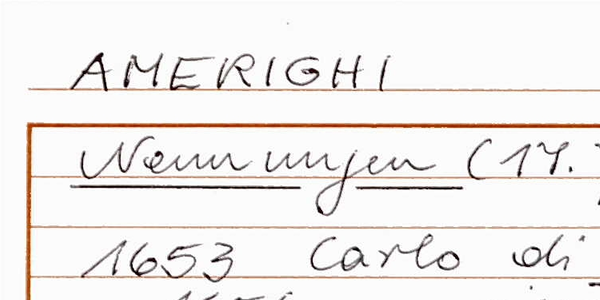 AMERIGHI
Nennungen (17.
1653 Carlo di